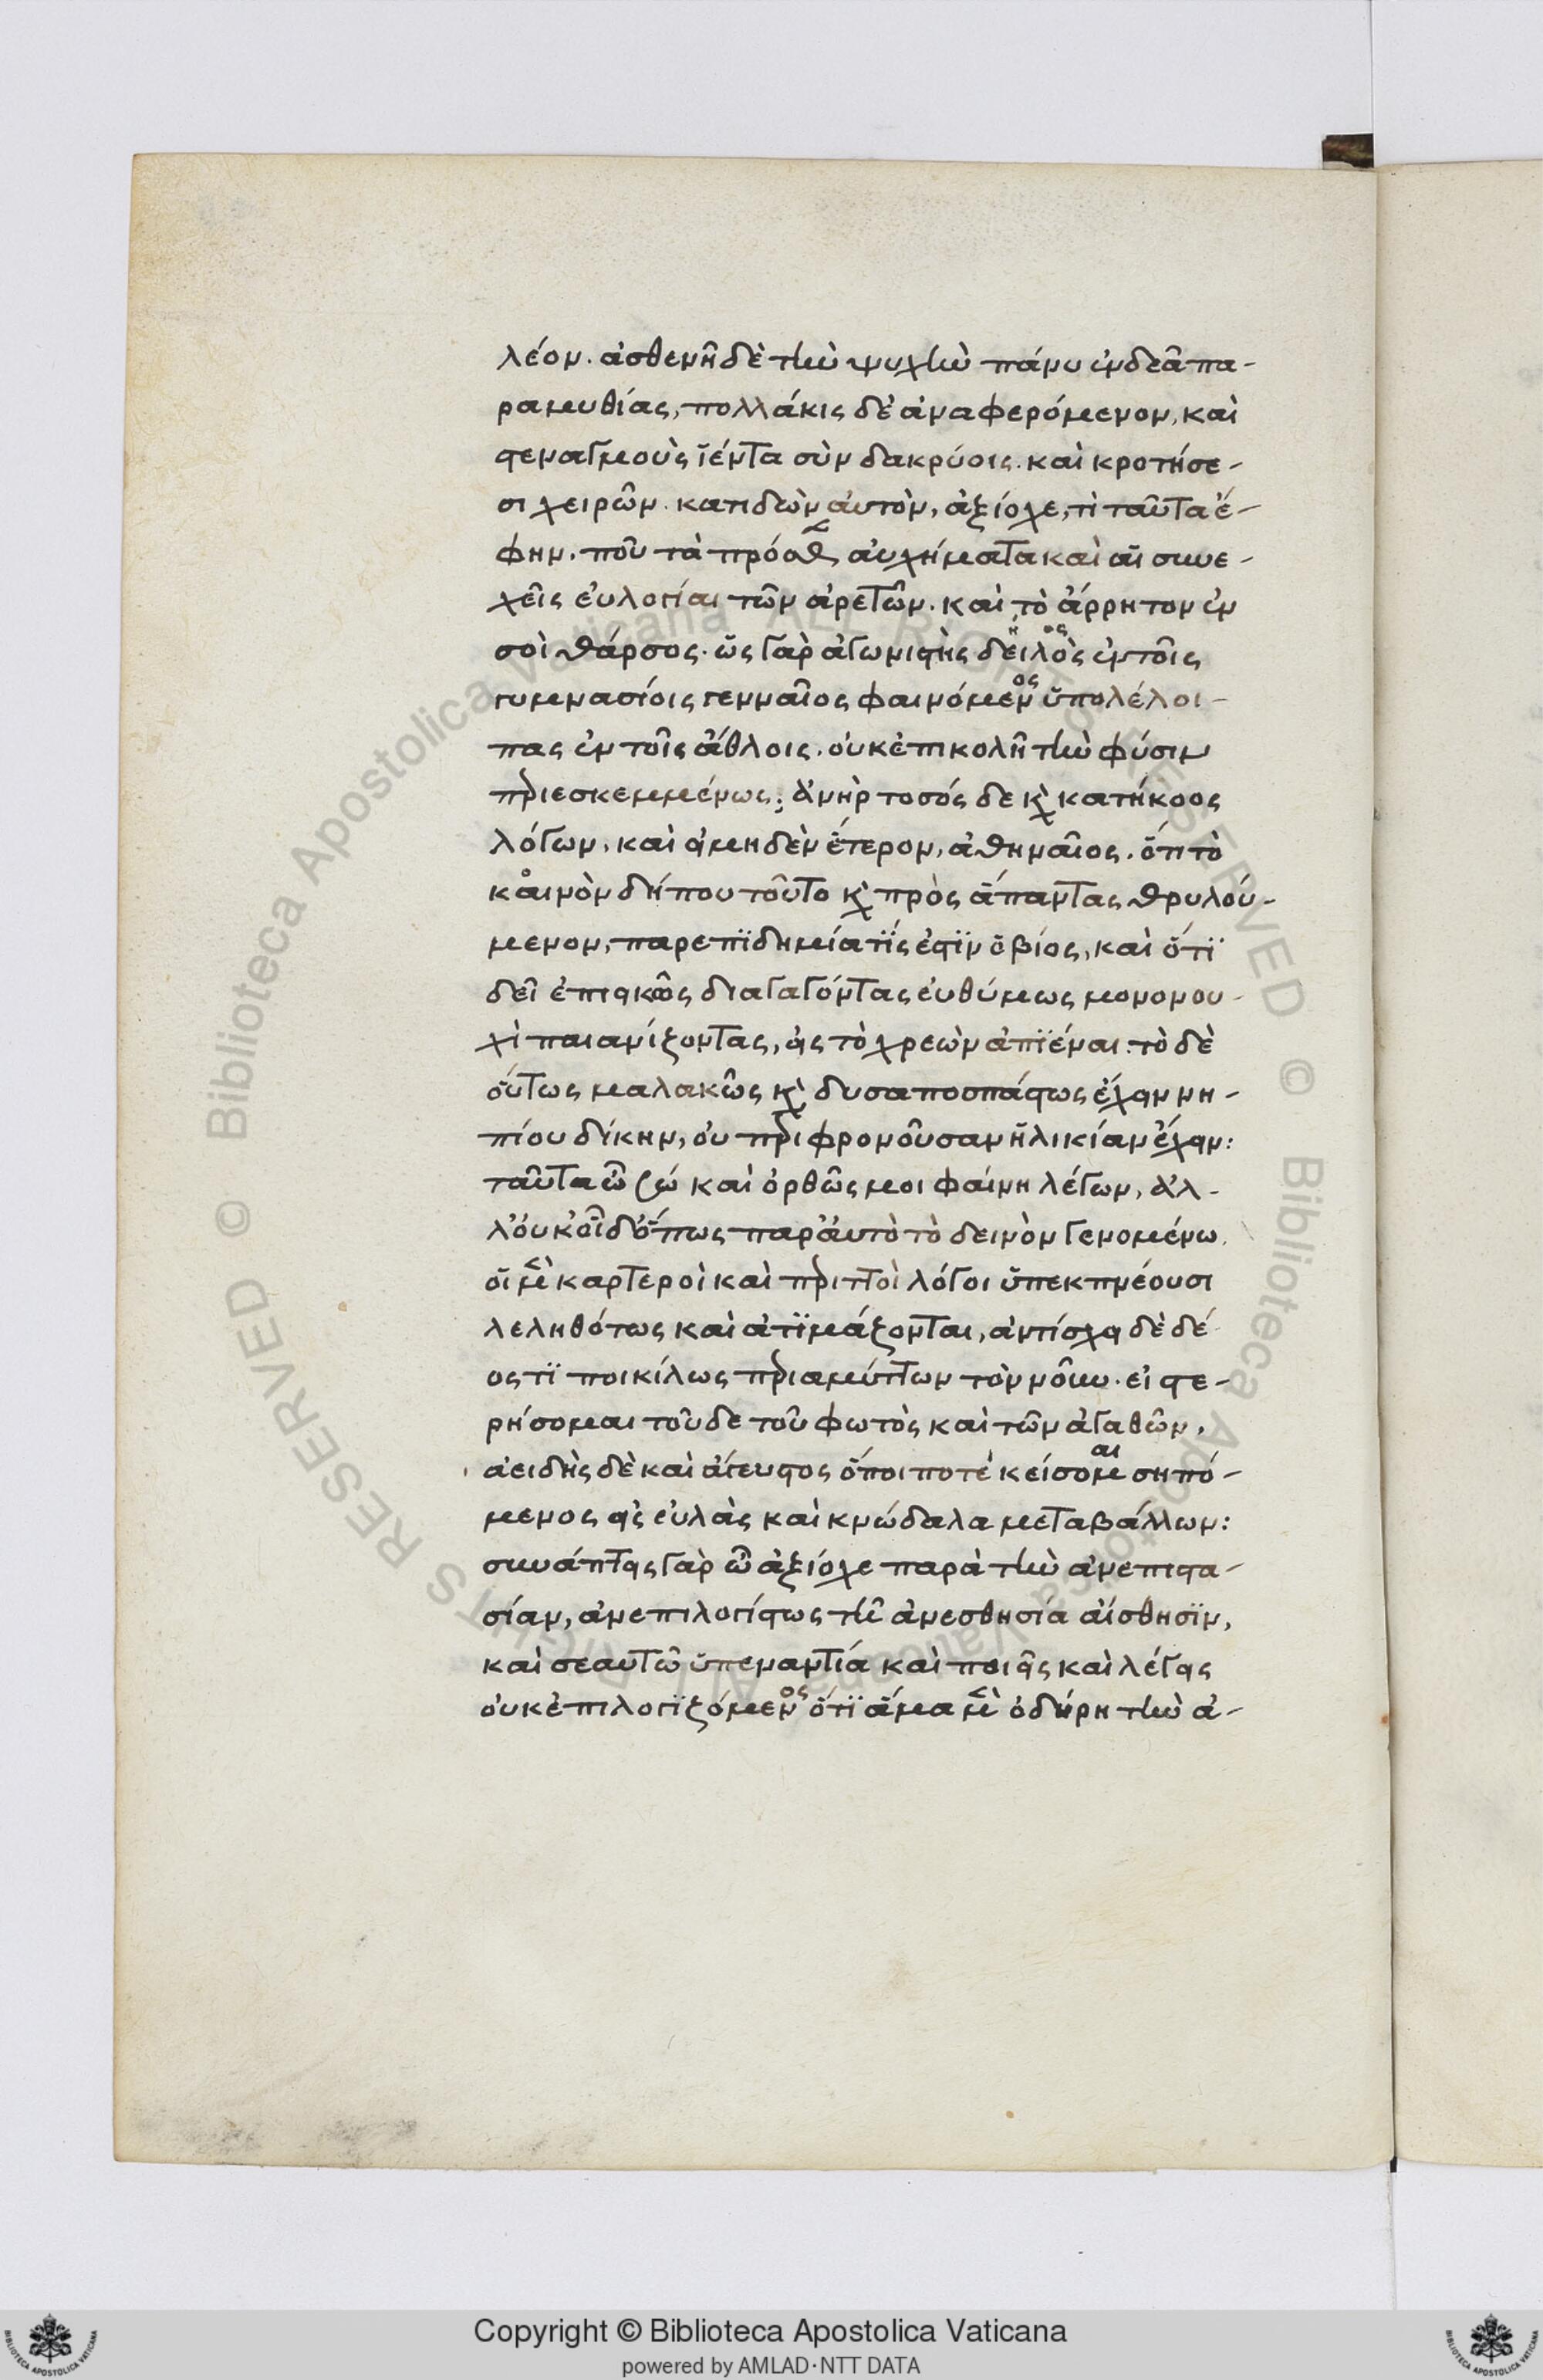 λέον. ἀσθενῆ δὲ τὴν ψυχὴν πάνυ ἐνδεᾶ πα-
ραμυθίας, πολλάκις δὲ ἀναφερόμενον, καὶ
στεναγμοὺς ἱέντα σὺν δακρύοις. καὶ κροτήσε-
σι χειρῶν. κατιδὼν αὐτὸν, ἀξίοχε, τί ταῦτα ἔ-
φην. ποῦ τὰ πρόσθεν αὐχήματα καὶ αἱ συνε-
χεῖς εὐλογίαι τῶν ἀρετῶν. καὶ τὸ ἄρρητον ἐν
σοὶ θάρσος. ὡς γὰρ ἀγωνιστὴς δειλὸς ἐν τοῖς
γυμνασίοις γενναῖος φαινόμενος ὑπολέλοι-
πας ἐν τοῖς ἄθλοις. οὐκ ἐπικολῆ τὴν φύσιν
περιεσκεμμένως; ἀνὴρ τοσόσδε καὶ κατήκοος
λόγων, καὶ εἰ μηδὲν ἕτερον, ἀθηναῖος. ὅτι τὸ
κοινὸν δήπου τοῦτο καὶ πρὸς ἅπαντας θρυλού-
μενον, παρεπϊδημία τΐς ἐστΐν ὁ βίος, καὶ ὅτϊ
δεῖ ἐπιεικῶς διαγαγόντας εὐθύμως μονονου-
χὶ παιανίζοντας, εἰς τὸ χρεὼν ἀπϊέναι. τὸ δὲ
οὕτως μαλακῶς καὶ δυσαποσπάστως ἔχειν νη-
πίου δίκην, οὐ περιφρονοῦσαν ἡλικίαν ἔχειν:
ταῦτα ὦ σώ καὶ ὀρθῶς μοι φαίνη λέγων, ἀλ-
λ᾽ οὐκ οἶδ᾽ ὅπως παρ᾽ αὐτὸ τὸ δεινὸν γενομένω.
οἱ μὲν καρτεροὶ καὶ περιττοὶ λόγοι ὑπεκπνέουσι
λεληθότως καὶ ἀτϊμάζονται, ἀντίσχει δὲ δέ
ος τϊ ποικίλως περιαμύττων τὸν νοῦν. εἰ στε-
ρήσομαι τοῦδε τοῦ φωτὸς καὶ τῶν ἀγαθῶν,
ἀειδὴς δὲ καὶ ἄγευστος ὅποι ποτὲ κείσομαι σηπό-
μενος εἰς εὐλὰς καὶ κνώδαλα μεταβάλλων:
συνάπτεις γὰρ ὦ ἀξίοχε παρὰ τὴν ἀνεπιστα-
σίαν, ἀνεπιλογίστως τῆ ἀνεσθησία αἴσθησϊν,
καὶ σεαυτῶ ὑπεναντία καὶ ποιεῖς καὶ λέγεις
οὐκ ἐπιλογϊζόμενος ὅτϊ ἅμα μὲν ὀδύρη τὴν ἀ-
Copyright © Biblioteca Apostolica Vaticana
powered by AMLAD·NTT DATA